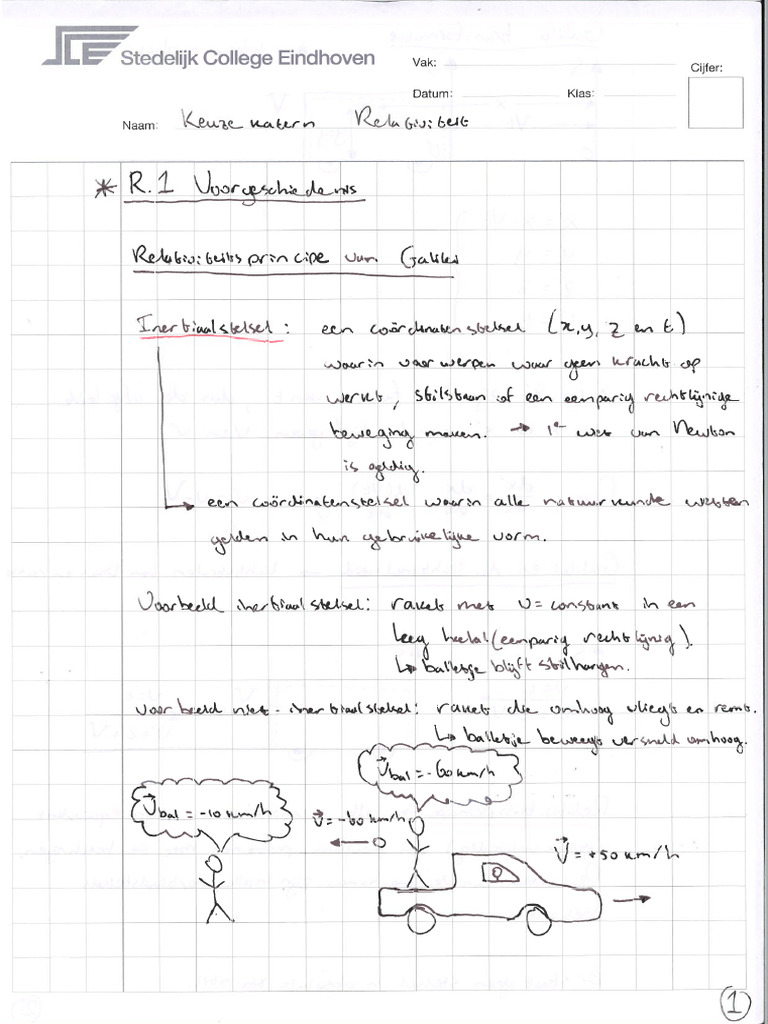 SCE Stedelijk College Eindhoven
Vak:
Cijfer:
Datum: Klas:
Naam: Keuze katern Relativiteit
* R.1 Voorgeschiedenis
Relativiteitsprincipe van Galilei
Inertiaalstelsel: een coördinatenstelsel (x, y, z en t)
waarin voorwerpen waar geen kracht op
werkt, stilstaan of een eenparig rechtlijnige
beweging maken. → 1e wet van Newton
is geldig.
een coördinatenstelsel waarin alle natuurkunde wetten
gelden in hun gebruikelijke vorm.
Voorbeeld inertiaalstelsel: raket met v = constant in een
leeg heelal (eenparig rechtlijnig).
↳ balletje blijft stilhangen.
Voorbeeld niet-inertiaalstelsel: raket die omhoog vliegt en remt.
↳ balletje beweegt versneld omhoog.
v⃗bal = -60 km/h
v⃗bal = -10 km/h
v⃗ = -60 km/h
v⃗ = +50 km/h
1